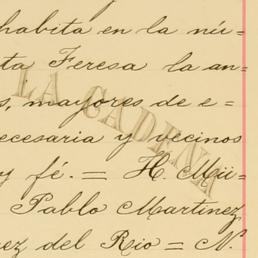 habita en la nú-
ta Teresa la an-
s, mayores de e=
ecesaria y vecinos
y fé. = H. Mü-
Pablo Martinez
ez del Rio = N.
LA CADENA